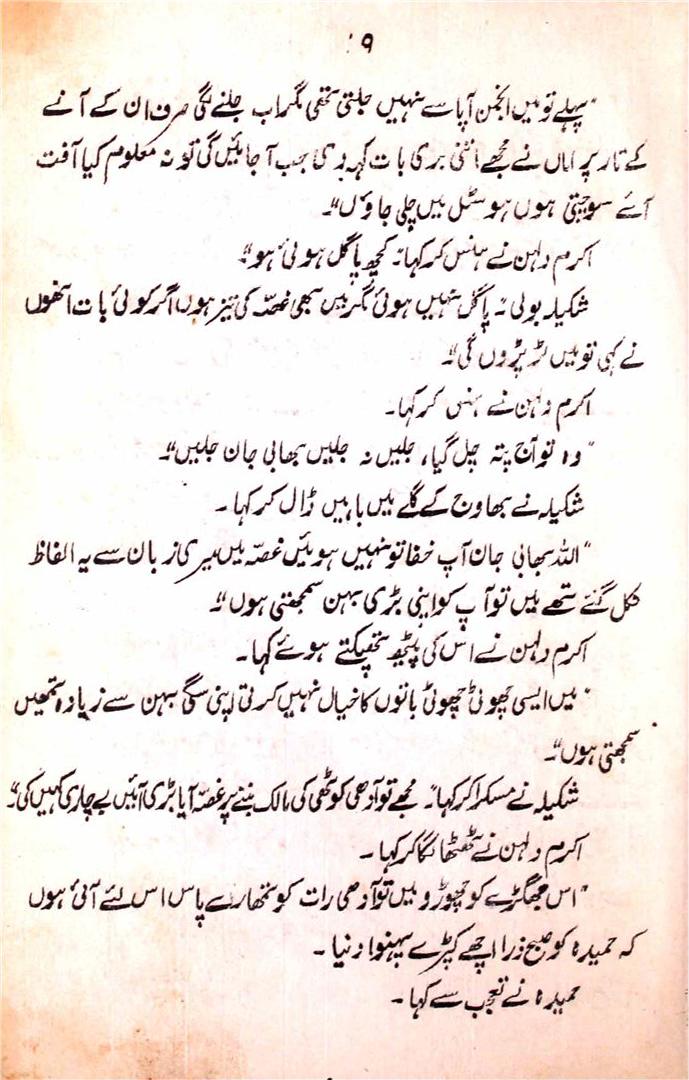 ۹
"پہلے تو میں انجمن آپا سے نہیں جلتی تھی مگر اب جلنے لگی صرف ان کے آنے
کے تار پر اماں نے مجھے اتنی بری بات کہہ دی جب آ جائیں گی تو نہ معلوم کیا آفت
آئے سوچتی ہوں ہوسٹل میں چلی جاؤں"۔
اکرم دلہن نے ہانس کر کہا۔ "کچھ پاگل ہوئی ہو"۔
شکیلہ بولی۔ "پاگل نہیں ہوئی مگر میں بھی غصّہ کی تیز ہوں اگر کوئی بات انھوں
نے کہی تو میں لڑ پڑوں گی"۔
اکرم دلہن نے ہنس کر کہا۔
"وہ تو آج پتہ چل گیا، جلیں نہ جلیں بھابی جان جلیں"۔
شکیلہ نے بھاوج کے گلے میں باہیں ڈال کر کہا۔
"اللہ بھابی جان آپ خفا تو نہیں ہوئیں غصّہ میں میری زبان سے یہ الفاظ
نکل گئے تھے میں تو آپ کو اپنی بڑی بہن سمجھتی ہوں"۔
اکرم دلہن نے اس کی پیٹھ تھپکتے ہوئے کہا۔
"میں ایسی چھوٹی چھوٹی باتوں کا خیال نہیں کرتی اپنی سگی بہن سے زیادہ تمھیں
سمجھتی ہوں"۔
شکیلہ نے مسکرا کر کہا۔ "مجھے تو آدھی کوٹھی کی مالک بننے پر غصّہ آیا بڑی آئیں بے چاری کہیں کی"۔
اکرم دلہن نے ٹھٹھا لگا کر کہا۔
"اس جھگڑے کو چھوڑو میں تو آدھی رات کو تمھارے پاس اس لئے آئی ہوں
کہ حمیدہ کو صبح ذرا اچھے کپڑے پہنوا دنیا۔
حمیدہ نے تعجب سے کہا۔